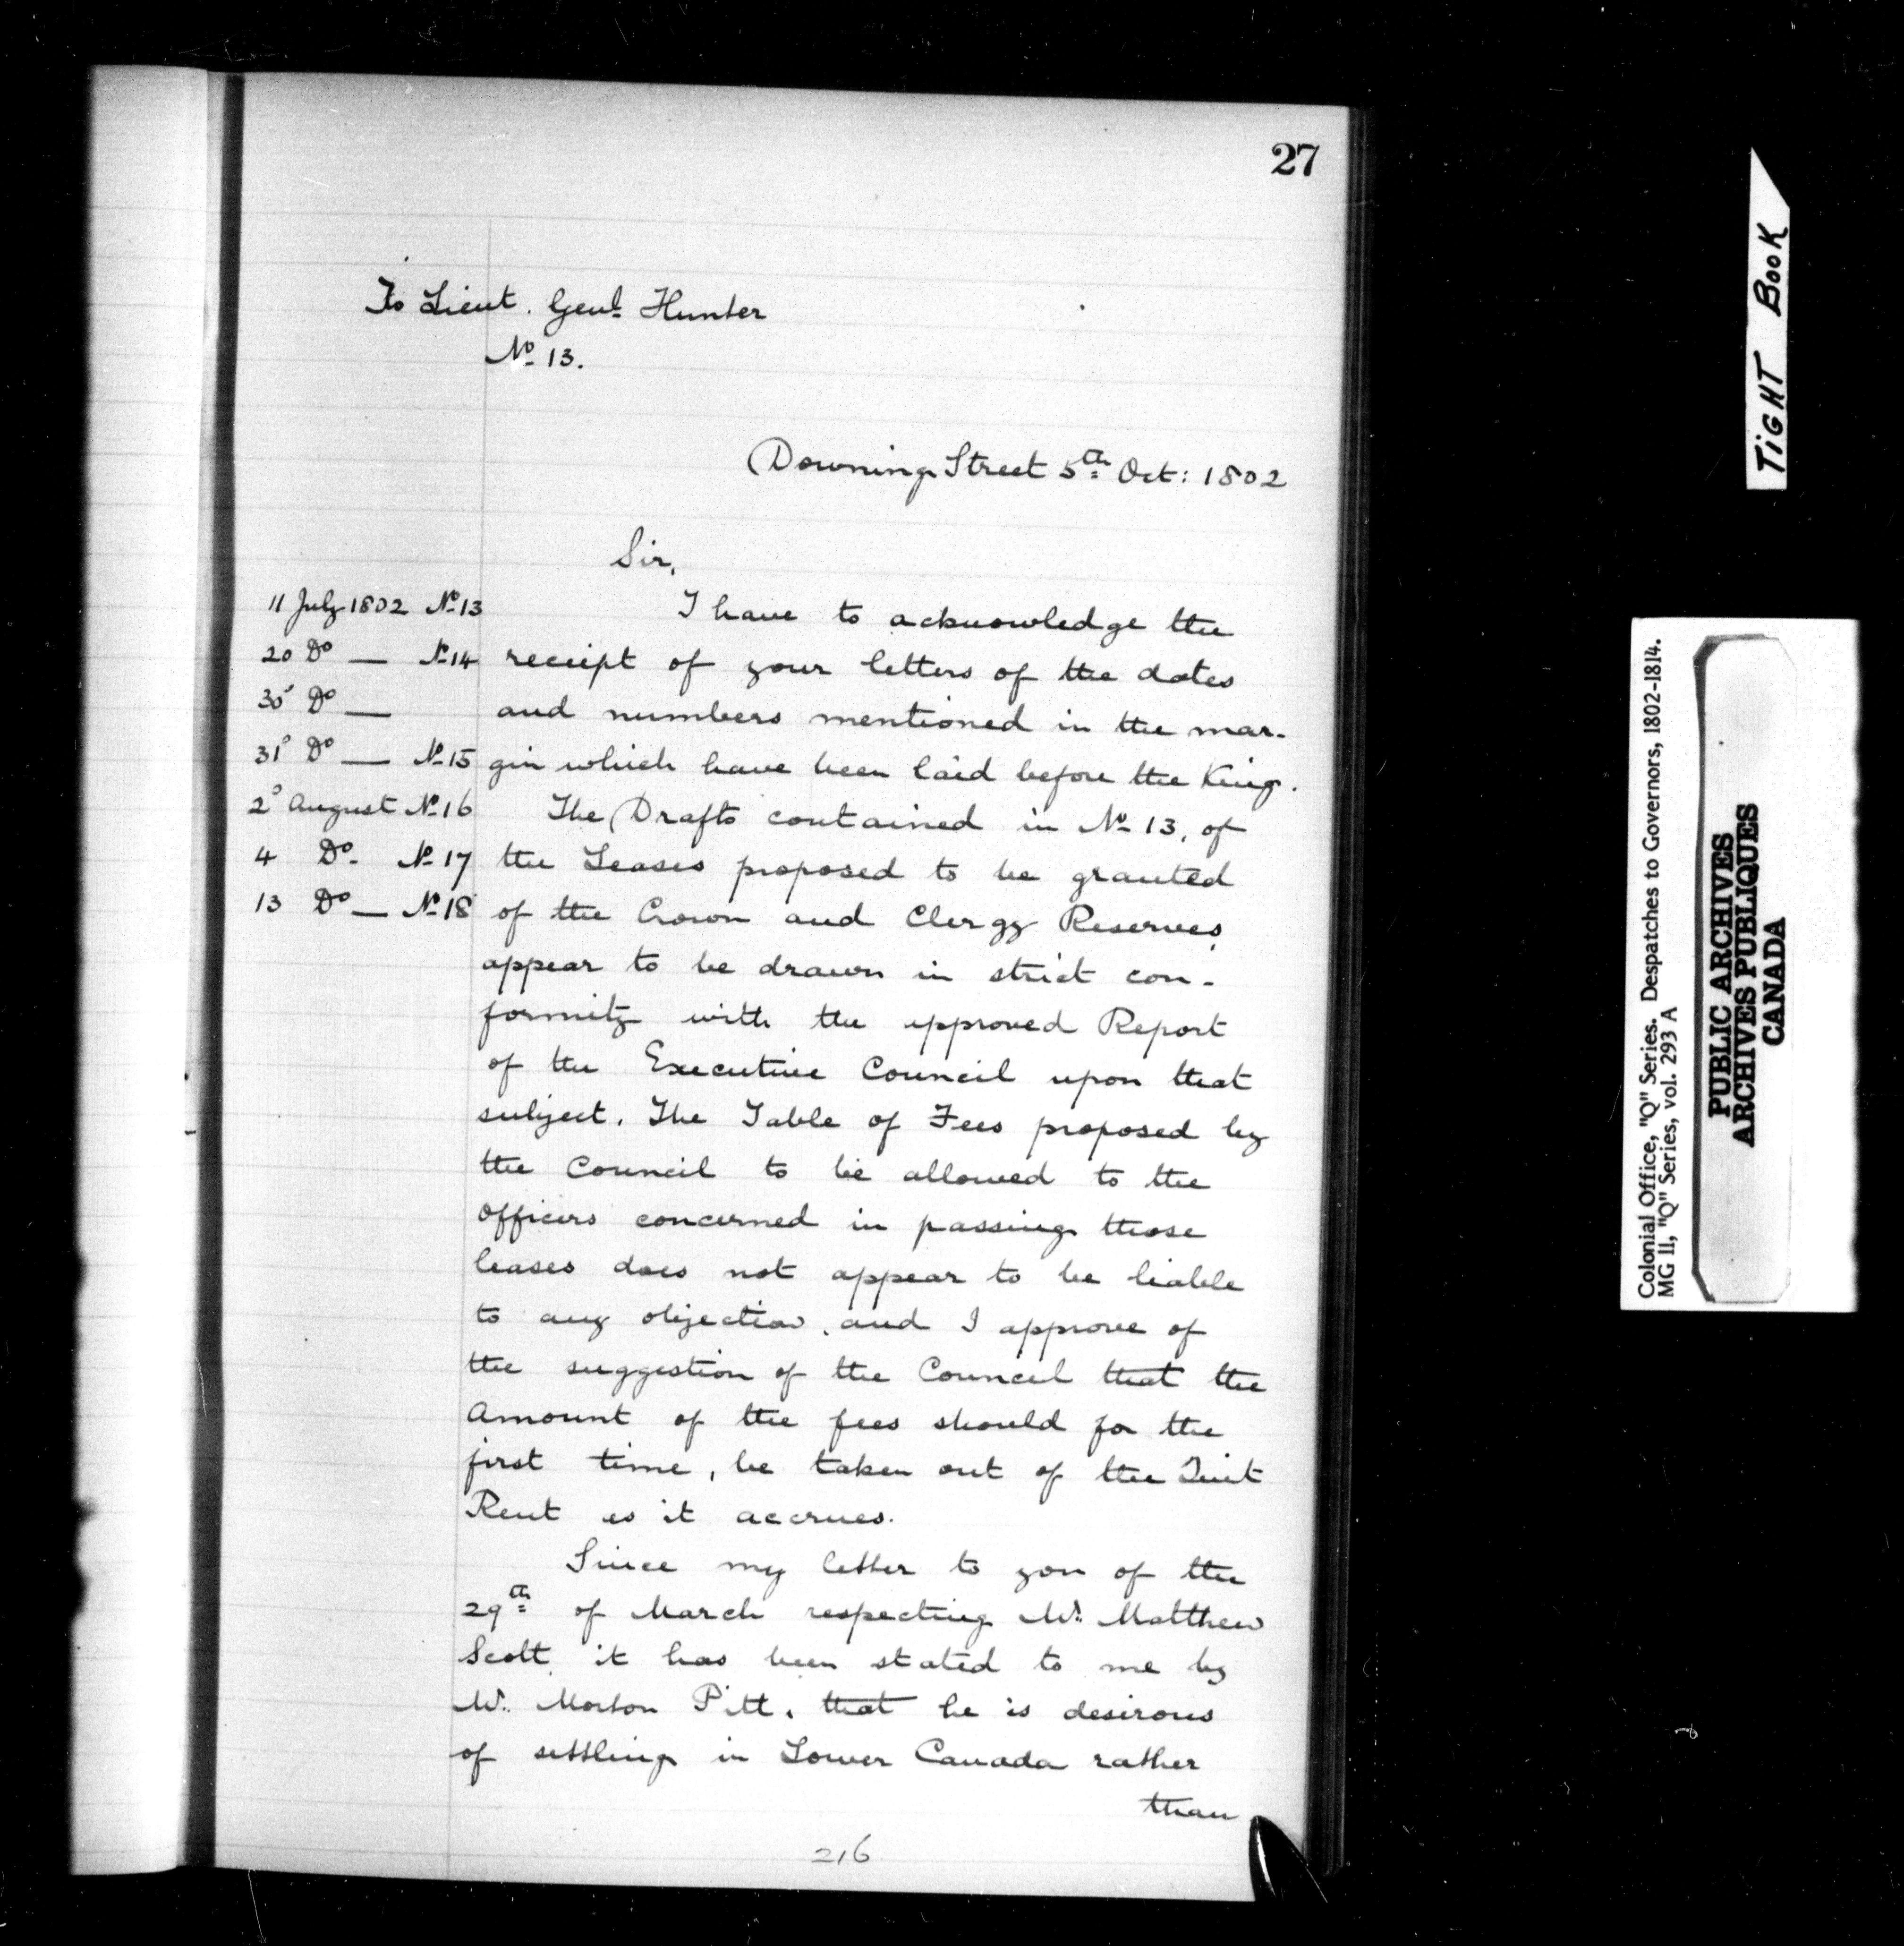 27
To Lieut. Genl. Hunter
No 13.
Downing Street 5th Oct: 1802
Sir,
11 July 1802 No 13
20 Do — No 14
30 Do —
31 Do — No 15
2 August No 16
4 Do - No 17
13 Do — No 18
I have to acknowledge the
receipt of your letters of the dates
and numbers mentioned in the mar-
gin which have been laid before the King.
The Drafts contained in No 13, of
the Leases proposed to be granted
of the Crown and Clergy Reserves,
appear to be drawn in strict con-
formity with the approved Report
of the Executive Council upon that
subject. The Table of Fees proposed by
the Council to be allowed to the
officers concerned in passing those
leases does not appear to be liable
to any objection, and I approve of
the suggestion of the Council that the
amount of the fees should for the
first time, be taken out of the Quit
Rent as it accrues.
Since my letter to you of the
29th of March respecting Mr. Matthew
Scott, it has been stated to me by
Mr. Morton Pitt, that he is desirous
of settling in Lower Canada rather
than
216
TIGHT BOOK
Colonial Office, "Q" Series. Despatches to Governors, 1802-1814.
MG 11, "Q" Series, vol. 293 A
PUBLIC ARCHIVES
ARCHIVES PUBLIQUES
CANADA